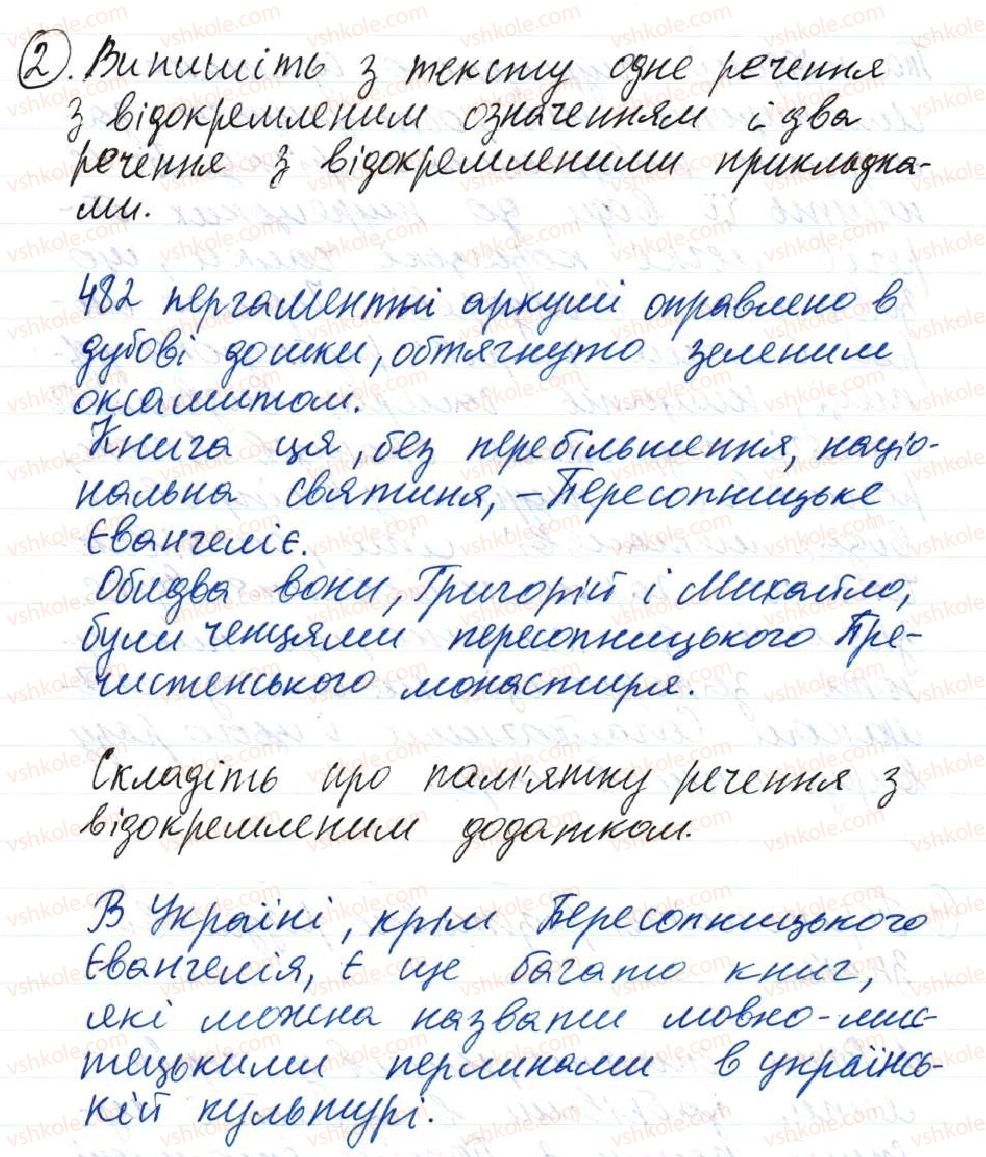 2. Випишіть з тексту одне речення
з відокремленим означенням і два
речення з відокремленими прикладка-
ми.
482 пергаментні аркуші оправлено в
дубові дошки, обтягнуто зеленим
оксамитом.
Книга ця, без перебільшення, націо-
нальна святиня, - Пересопницьке
Євангеліє.
Обидва вони, Григорій і Михайло,
були ченцями пересопницького Пре-
чистенського монастиря.
Складіть про пам'ятку речення з
візокремленим додатком.
В Україні, крім Пересопницького
Євангелія, є ще багато книг,
які можна назвати мовно-мис-
тецькими перлинами в українсь-
кій культурі.